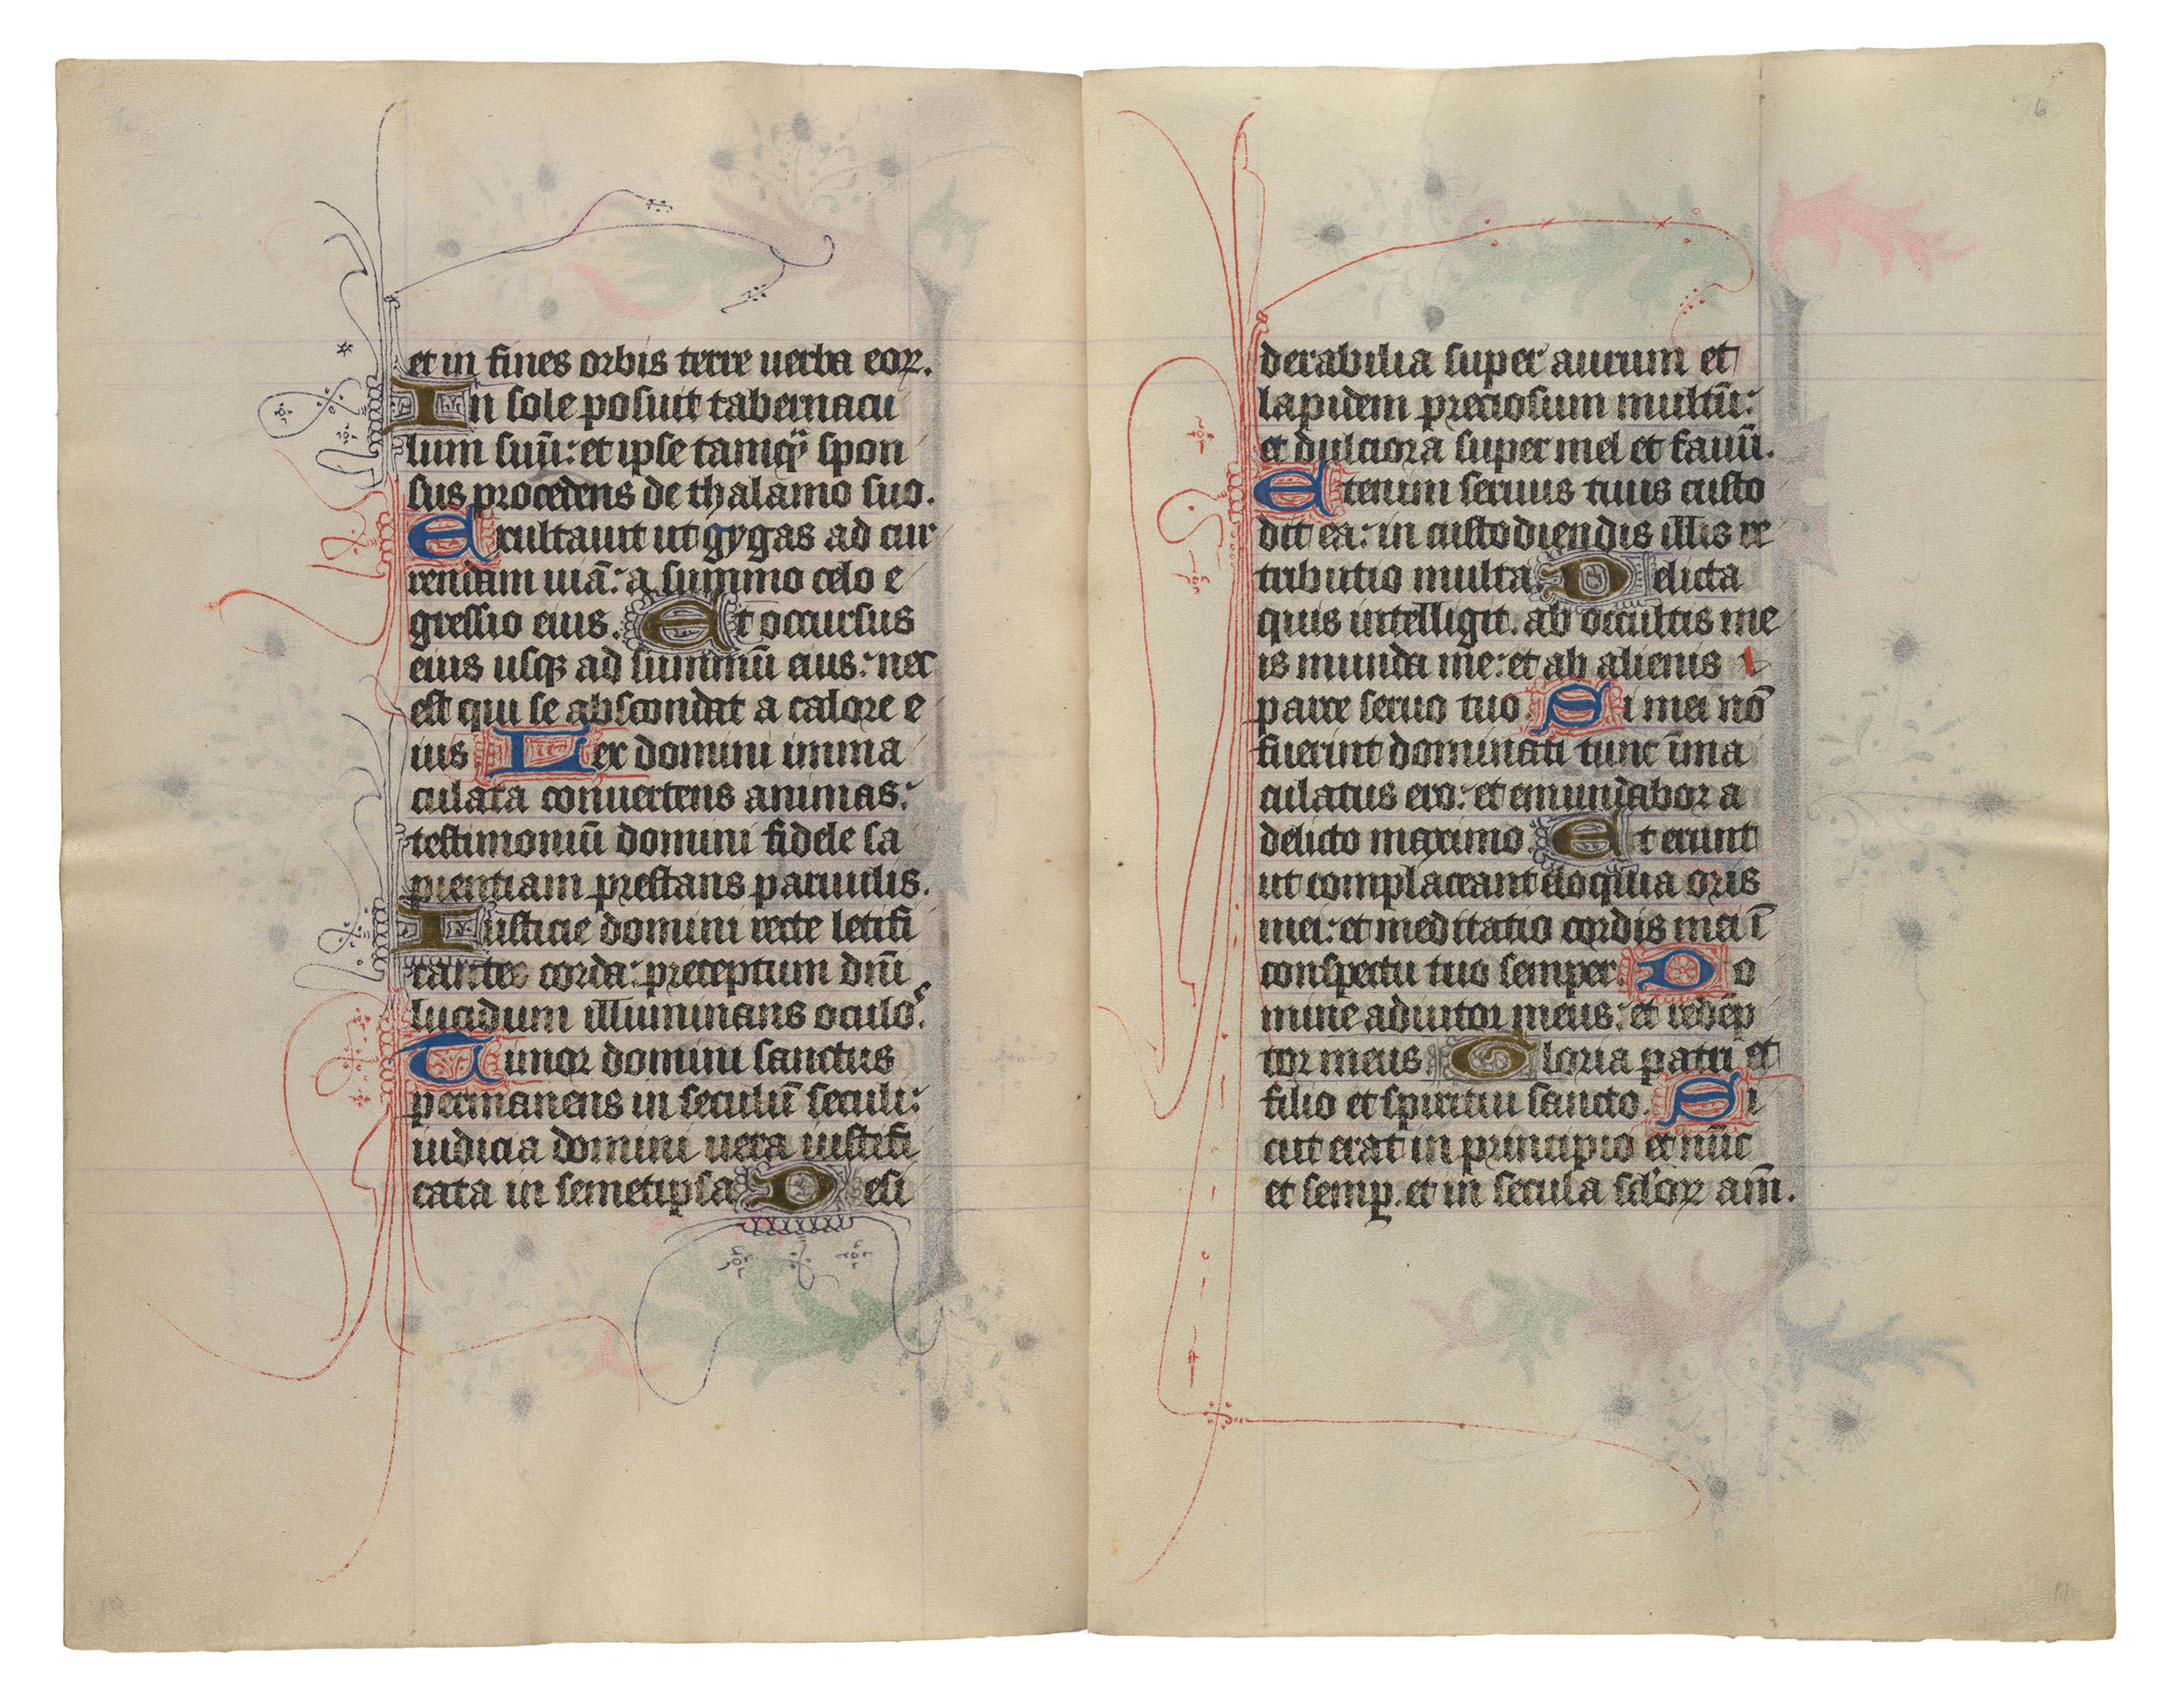 et in fines orbis terre uerba eoꝝ.
In sole posuit tabernacu
lum suū: et ipse tamqͣ spon
sus procedens de thalamo suo.
Exultauit ut gygas ad cur
rendam uiā: a summo celo e
gressio eius. Et occursus
eius usqꝫ ad summū eius: nec
est qui se abscondat a calore e
ius Lex domini imma
culata conuertens animas:
testimoniū domini fidele sa
pientiam prestans paruulis.
Iusticie domini recte letifi
cantes corda: preceptum dnī
lucidum illuminans oculoˢ.
Timor domini sanctus
permanens in seculū seculi:
iudicia domini uera iustifi
cata in semetipsa Desi
6
derabilia super aurum et
lapidem preciosum multū:
et dulciora super mel et fauū.
Etenim seruus tuus custo
dit ea: in custodiendis illis re
tributio multa. Delicta
quis intelligit. ab occultis me
is munda me: et ab alienis
parce seruo tuo. Si mei nō
fuerint dominati tunc īma
culatus ero: et emundabor a
delicto maximo. Et erunt
ut complaceant eloquia oris
mei: et meditatio cordis mei ī
conspectu tuo semper. Do
mine adiutor meus: et redēp
tor meus. Gloria patri et
filio et spiritui sancto. Si
cut erat in principio et nūc
et semꝑ. et in secula sc̄loꝝ am̄.